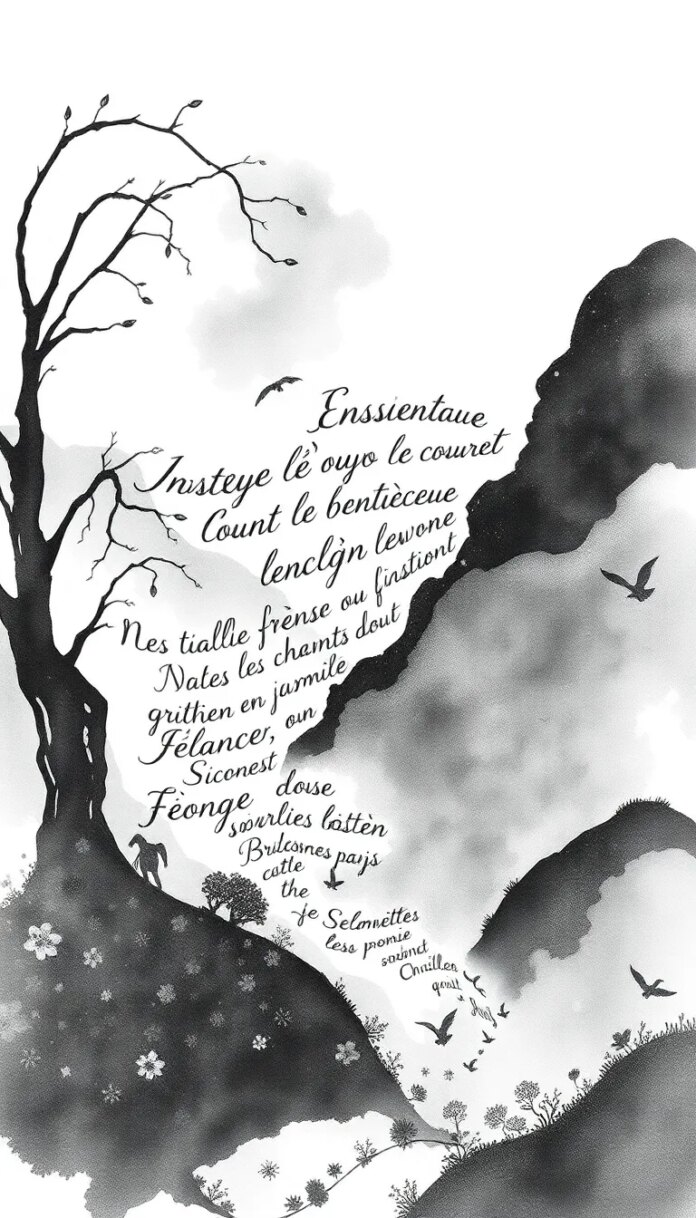 Enssientaue
Insteye lè ouyo le couuret
Count le bentièceue
lenclġn lewone
Nes tiallie frènse ou finstiont
Nates les chamts dout
grithen en jurmile
Félancer, oun
Siconest
Fèonge douse
sourlies bistèn
Brilcosnes pays
catle
the
je Selomettes
less promie
Onuillen